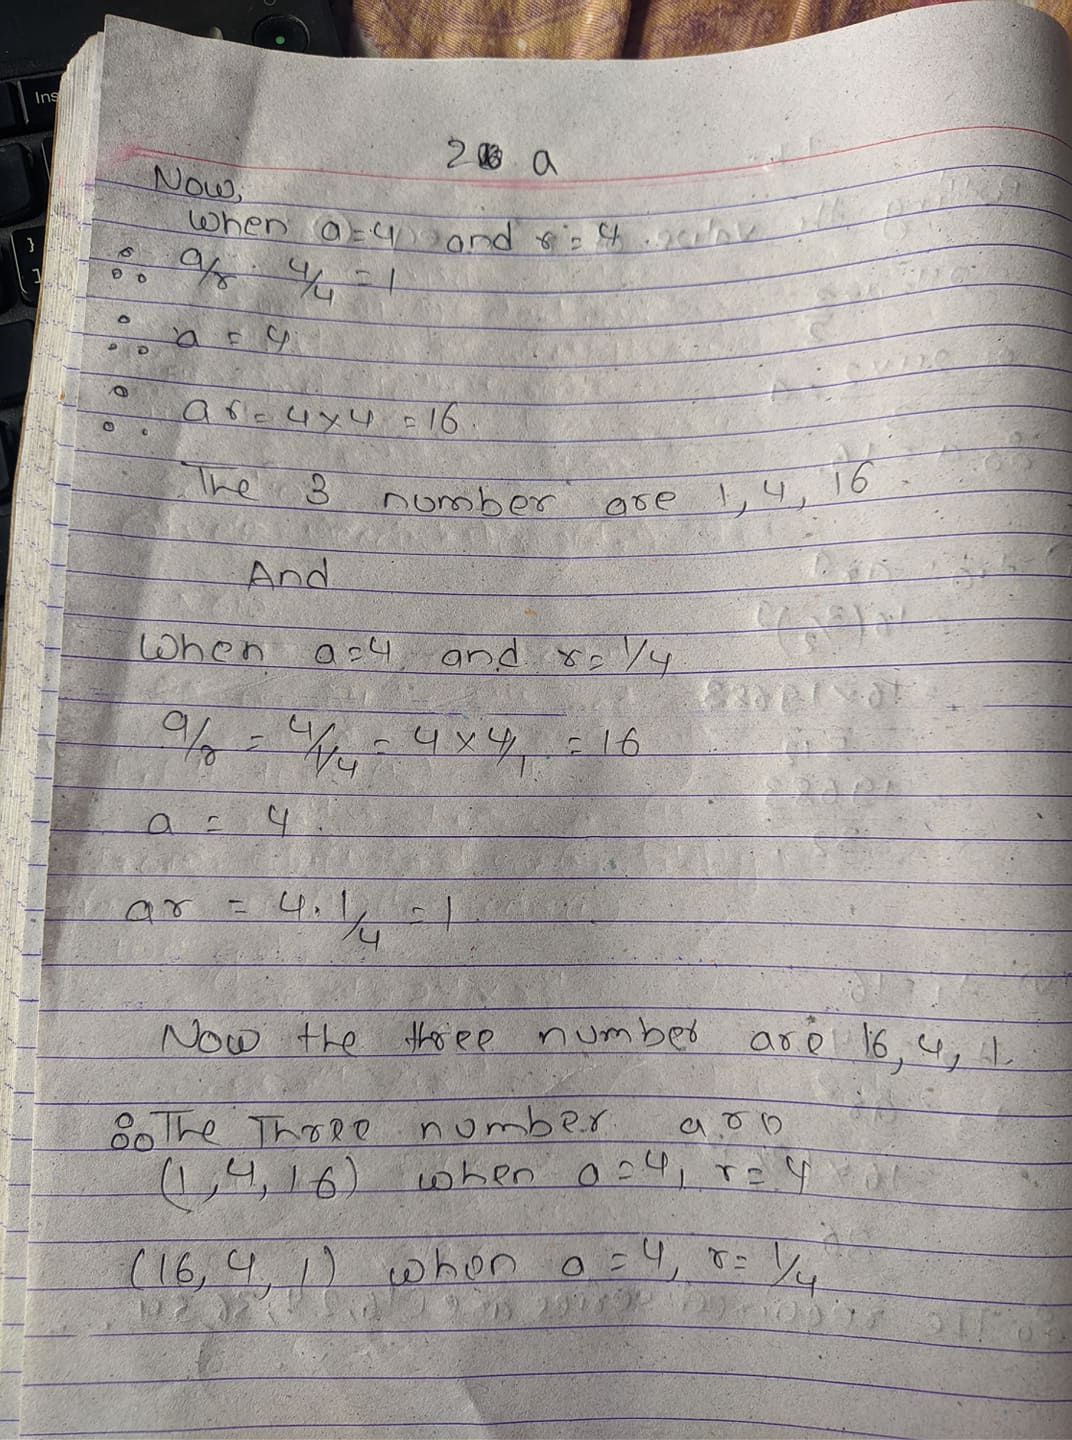 Ins
}
]
26 a
Now,
when a=4 and r=4.
∴ a/r 4/4 = 1
∴ a = 4
∴ ar = 4×4 = 16.
The 3 number are 1, 4, 16.
And
When a=4 and r=1/4
a/r = 4/1/4 = 4×4/1 = 16
a = 4.
ar = 4.1/4 = 1
Now the three number are 16, 4, 1.
∴ The Three number are
(1, 4, 16) when a=4, r=4
(16, 4, 1) when a=4, r=1/4